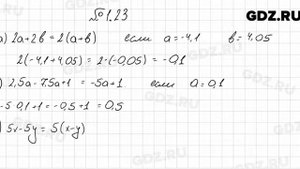 GDZ.RU
№1.23
а) 2a+2b = 2(a+b) если a=-4,1 b=4,05
2(-4,1+4,05) = 2·(-0,05) = -0,1
) 2,5a-7,5a+1 = -5a+1 если a=0,1
-5·0,1+1 = -0,5+1 = 0,5
) 5x-5y = 5(x-y)
GDZ.RU